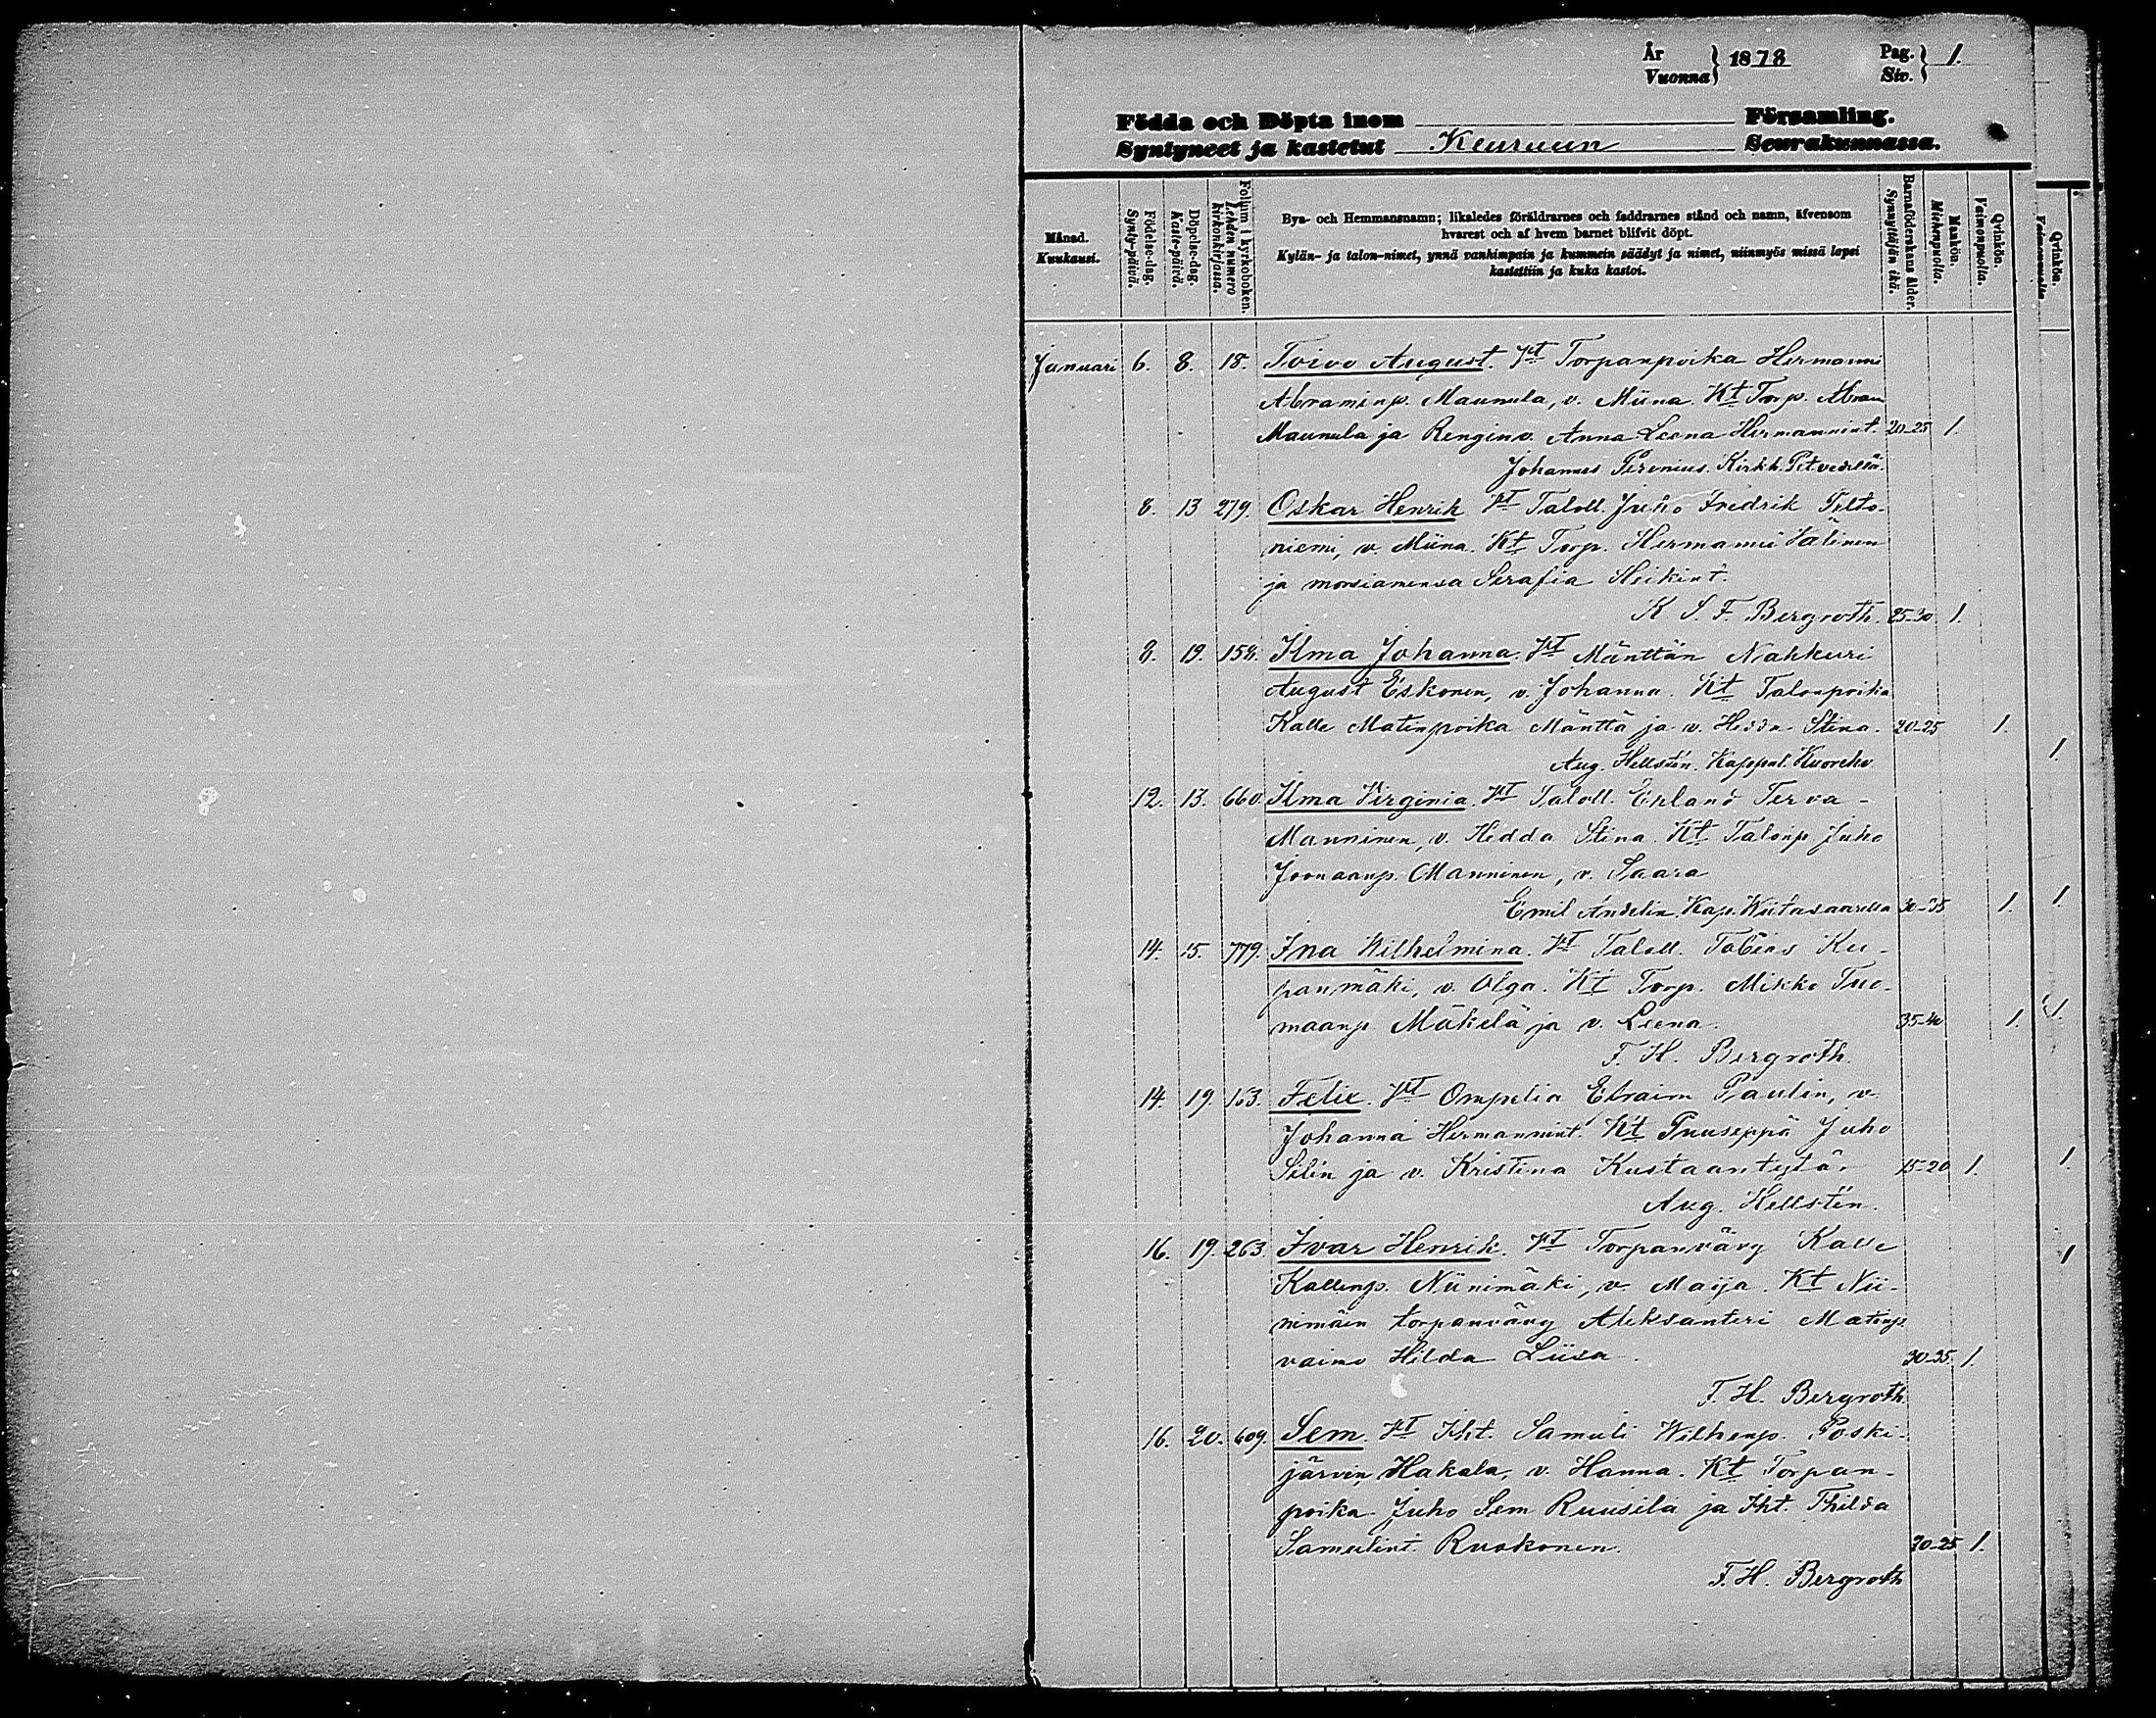 År Vuonna } 1878 Pag. Siv. } 1.
Födda och Döpta inom Församling.
Syntyneet ja kastetut Keuruun Seurakunnassa.
Månad. Kuukausi.
Födelse-dag. Synty-päivä.
Döpelse-dag. Kaste-päivä.
Folium i kyrkoboken. Lehden numero kirkonkirjassa.
Bya- och Hemmansnamn; likaledes föräldrarnes och faddrarnes stånd och namn, äfvensom
hvarest och af hvem barnet blifvit döpt.
Kylän- ja talon-nimet, ynnä vanhimpain ja kummein säädyt ja nimet, niinmyös missä lapsi
kastettiin ja kuka kastoi.
Barnaföderskans ålder. Synnyttäjän ikä.
Mankön. Miehenpuolia.
Qvinkön. Vaimonpuolia.
Qvinkön. Vaimonpuolia
Januari 6. 8. 18. Toivo August. Vt Torpanpoika Hermanni
Abraminp. Maunula, v. Miina. Kt Torp. Abram
Maunula ja Renginv. Anna Leena Hermannint. 20-25 1.
Johannes Perenius. Kirkh. Petvedellä.
8. 13 279. Oskar Henrik Vt Taloll. Juho Fredrik Tilto-
niemi, v. Miina. Kt Torp. Hermanni Välinen
ja morsiamensa Serafia Heikint.
K. S. F. Bergroth. 25-30 1.
8. 19. 158. Ilma Johanna. Vt Mänttän Nahkuri
August Eskonen, v. Johanna. Kt Talonpoika
Kalle Matinpoika Mänttä ja v. Hedda Stina. 20-25 1.
Aug. Hellstén. Kappal. Kuoreh. 1.
12. 13. 660. Ilma Virginia. Vt Taloll. Erland Terva-
Manninen, v. Hedda Stina. Kt Talonp. Juho
Joonaanp. Manninen, v. Saara
Emil Andelin. Kap. Wiitasaarella 30-35 1. 1.
14. 15. 779. Ina Wilhelmina. Vt Taloll. Tobias Ku-
panmäki, v. Olga. Kt Torp. Mikko Tuo-
maanp. Mäkelä ja v. Leena. 35-40 1. 1.
F. H. Bergroth.
14. 19. 163. Felix. Vt Ompelia Efraim Paulin, v.
Johanna Hermannint. Kt Puuseppä Juho
Selin ja v. Kristina Kustaantytär 15-20 1. 1.
Aug. Hellstén.
16. 19. 263. Ivar Henrik. Vt Torpanvävy Kalle 1
Kallenp. Niinimäki, v. Maija. Kt Nii-
nimäen torpanvävy Aleksanteri Matinp.
vaimo Hilda Liisa. 30-35. 1.
F. H. Bergroth.
16. 20. 609. Sem. Vt Iht. Samuli Wilhenp. Poski-
järvin, Hakala, v. Hanna. Kt Torpan-
poika Juho Sem Ruusila ja Iht. Thilda
Samulint. Ruokonen. 20-25 1.
F. H. Bergroth